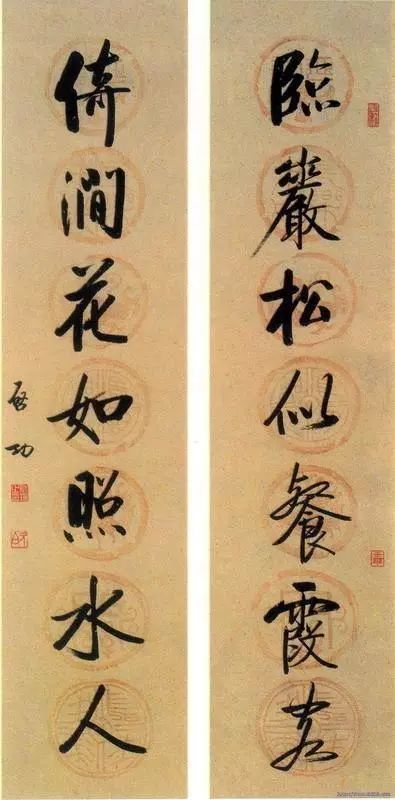 臨巖松似餐霞客
倚澗花如照水人
启功